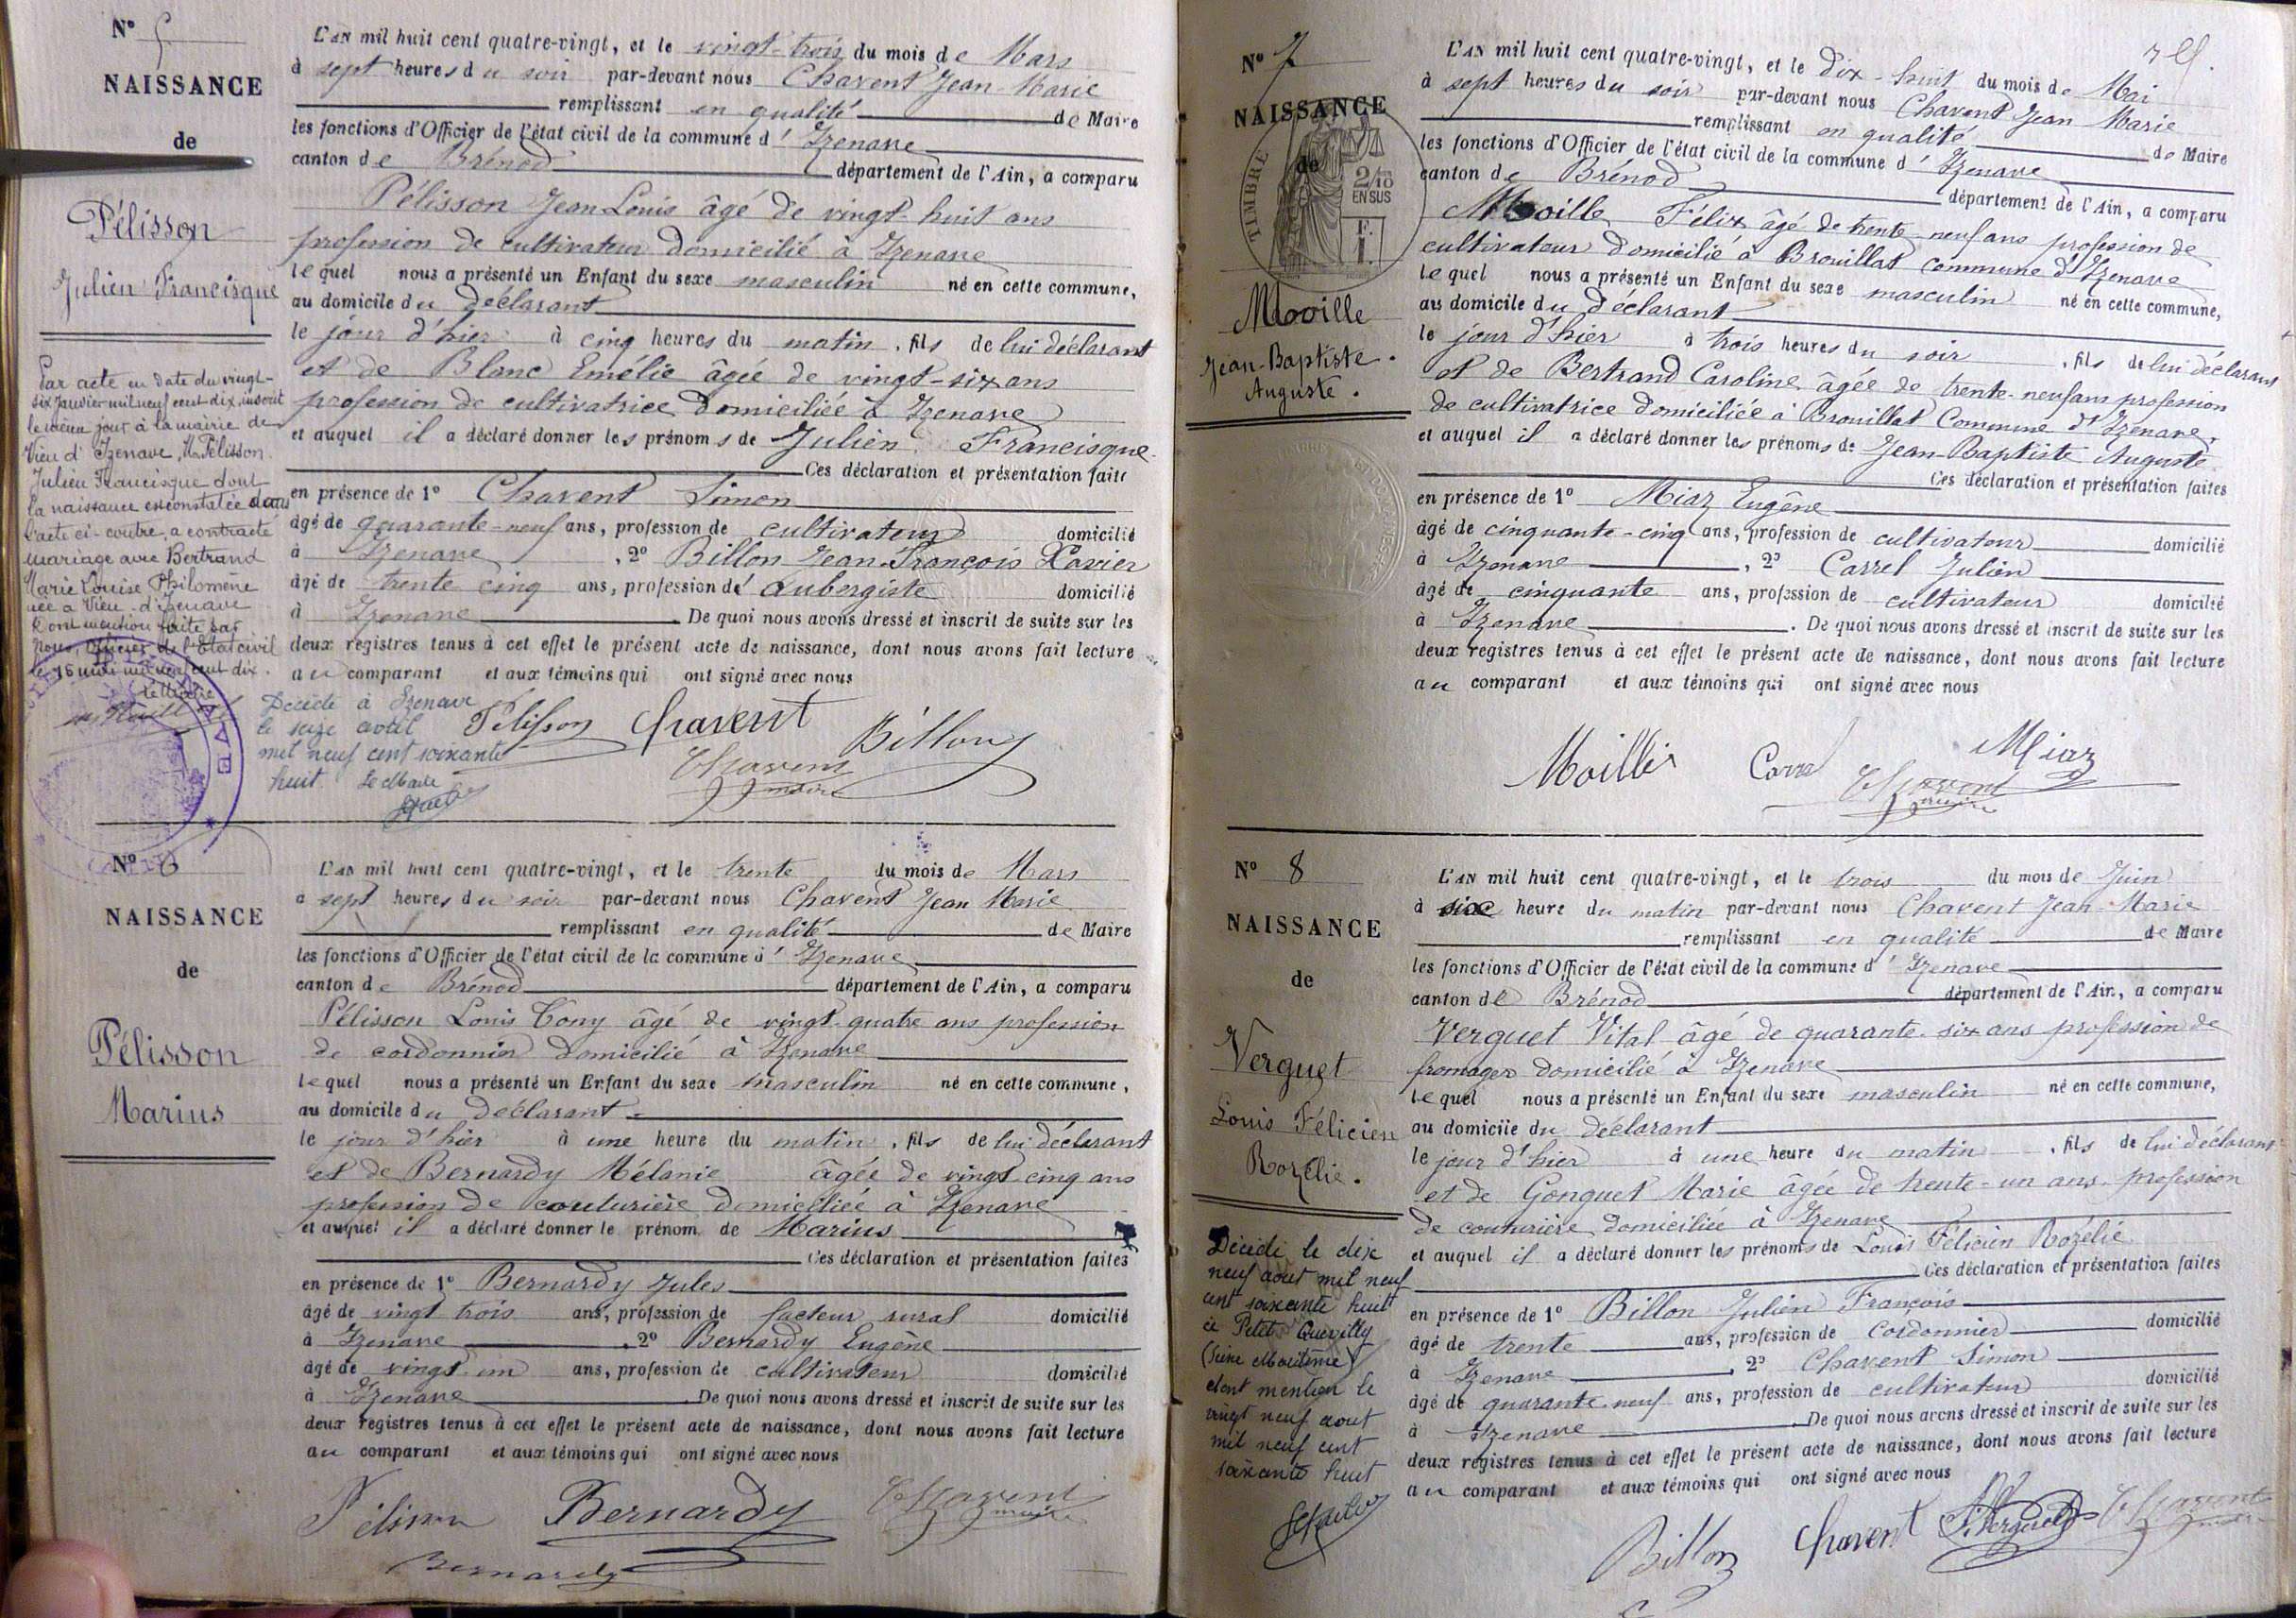 Nº 5
NAISSANCE
de
Pélisson
Julien Francisque
L'AN mil huit cent quatre-vingt, et le vingt-trois du mois de Mars
à sept heures du soir par-devant nous Chavent Jean-Marie
remplissant en qualité de Maire
les fonctions d'Officier de l'état civil de la commune d' Izenave
canton de Brénod département de l'Ain, a comparu
Pélisson Jean Louis âgé de vingt-huit ans
profession de cultivateur domicilié à Izenave
lequel nous a présenté un Enfant du sexe masculin né en cette commune,
au domicile du déclarant
le jour d'hier à cinq heures du matin, fils de lui déclarant
et de Blanc Emélie âgée de vingt-six ans
profession de cultivatrice domiciliée à Izenave
et auquel il a déclaré donner les prénoms de Julien Francisque
Ces déclaration et présentation faites
en présence de 1º Chavent Simon
âgé de quarante-neuf ans, profession de cultivateur domicilié
à Izenave, 2º Billon Jean-François Xavier
âgé de trente cinq ans, profession d' aubergiste domicilié
à Izenave. De quoi nous avons dressé et inscrit de suite sur les
deux registres tenus à cet effet le présent acte de naissance, dont nous avons fait lecture
au comparant et aux témoins qui ont signé avec nous
Pélisson Chavent Billon
Chavent
maire
Par acte en date du vingt-
six janvier mil neuf cent dix, inscrit
le même jour à la mairie de
Vieu d'Izenave, M. Pélisson
Julien Francisque dont
la naissance est constatée dans
l'acte ci-contre, a contracté
mariage avec Bertrand
Marie Louise Philomène
née à Vieu-d'Izenave
Dont mention faite par
nous, officier de l'Etat civil
le 16 mai mil neuf cent dix.
Décédé à Izenave
le seize avril
mil neuf cent soixante
huit. Le Maire
Nº 6
NAISSANCE
de
Pélisson
Marius
L'AN mil huit cent quatre-vingt, et le trente du mois de Mars
à sept heures du soir par-devant nous Chavent Jean Marie
remplissant en qualité de Maire
les fonctions d'Officier de l'état civil de la commune d' Izenave
canton de Brénod département de l'Ain, a comparu
Pélisson Louis Tony âgé de vingt-quatre ans profession
de cordonnier domicilié à Izenave
lequel nous a présenté un Enfant du sexe masculin né en cette commune,
au domicile du déclarant
le jour d'hier à une heure du matin, fils de lui déclarant
et de Bernardy Mélanie âgée de vingt cinq ans
profession de couturière domiciliée à Izenave
et auquel il a déclaré donner le prénom de Marius
Ces déclaration et présentation faites
en présence de 1º Bernardy Jules
âgé de vingt trois ans, profession de facteur rural domicilié
à Izenave, 2º Bernardy Eugène
âgé de vingt-un ans, profession de cultivateur domicilié
à Izenave. De quoi nous avons dressé et inscrit de suite sur les
deux registres tenus à cet effet le présent acte de naissance, dont nous avons fait lecture
au comparant et aux témoins qui ont signé avec nous
Pélisson Bernardy Chavent
maire
Bernardy
Nº 7
NAISSANCE
de
TIMBRE
2/10
EN SUS
F.
1.
Moville
Jean-Baptiste
Auguste.
L'AN mil huit cent quatre-vingt, et le dix-huit du mois de Mai
à sept heures du soir par-devant nous Chavent Jean Marie
remplissant en qualité de Maire
les fonctions d'Officier de l'état civil de la commune d' Izenave
canton de Brénod département de l'Ain, a comparu
Félix âgé de trente-neuf ans profession de
cultivateur domicilié à Brouillat commune d'Izenave
lequel nous a présenté un Enfant du sexe masculin né en cette commune,
au domicile du déclarant
le jour d'hier à trois heures du soir, fils de lui déclarant
et de Bertrand Caroline âgée de trente-neuf ans profession
de cultivatrice domiciliée à Brouillat Commune d'Izenave.
et auquel il a déclaré donner les prénoms de Jean-Baptiste Auguste
Ces déclaration et présentation faites
en présence de 1º Miaz Eugène
âgé de cinquante-cinq ans, profession de cultivateur domicilié
à Izenave, 2º Carrel Julien
âgé de cinquante ans, profession de cultivateur domicilié
à Izenave. De quoi nous avons dressé et inscrit de suite sur les
deux registres tenus à cet effet le présent acte de naissance, dont nous avons fait lecture
au comparant et aux témoins qui ont signé avec nous
Miaz
Chavent
maire
Nº 8
NAISSANCE
de
Verguet
Louis Félicien
Rozélie.
L'AN mil huit cent quatre-vingt, et le trois du mois de Juin
à six heure du matin par-devant nous Chavent Jean-Marie
remplissant en qualité de Maire
les fonctions d'Officier de l'état civil de la commune d' Izenave
canton de Brénod département de l'Ain, a comparu
Verguet Vital âgé de quarante-six ans profession de
fromager domicilié à Izenave
lequel nous a présenté un Enfant du sexe masculin né en cette commune,
au domicile du déclarant
le jour d'hier à une heure du matin, fils de lui déclarant
et de Gonguet Marie âgée de trente-un ans profession
de couturière domiciliée à Izenave
et auquel il a déclaré donner les prénoms de Louis Félicien Rozélie
Ces déclaration et présentation faites
en présence de 1º Billon Julien François
âgé de trente ans, profession de cordonnier domicilié
à Izenave, 2º Chavent Simon
âgé de quarante-neuf ans, profession de cultivateur domicilié
à Izenave. De quoi nous avons dressé et inscrit de suite sur les
deux registres tenus à cet effet le présent acte de naissance, dont nous avons fait lecture
au comparant et aux témoins qui ont signé avec nous
Billon Chavent Verguet Chavent
Décédé le dix
neuf aout mil neuf
cent soixante huit
à Petit Quevilly
(Seine Maritime)
dont mention le
vingt neuf aout
mil neuf cent
soixante huit